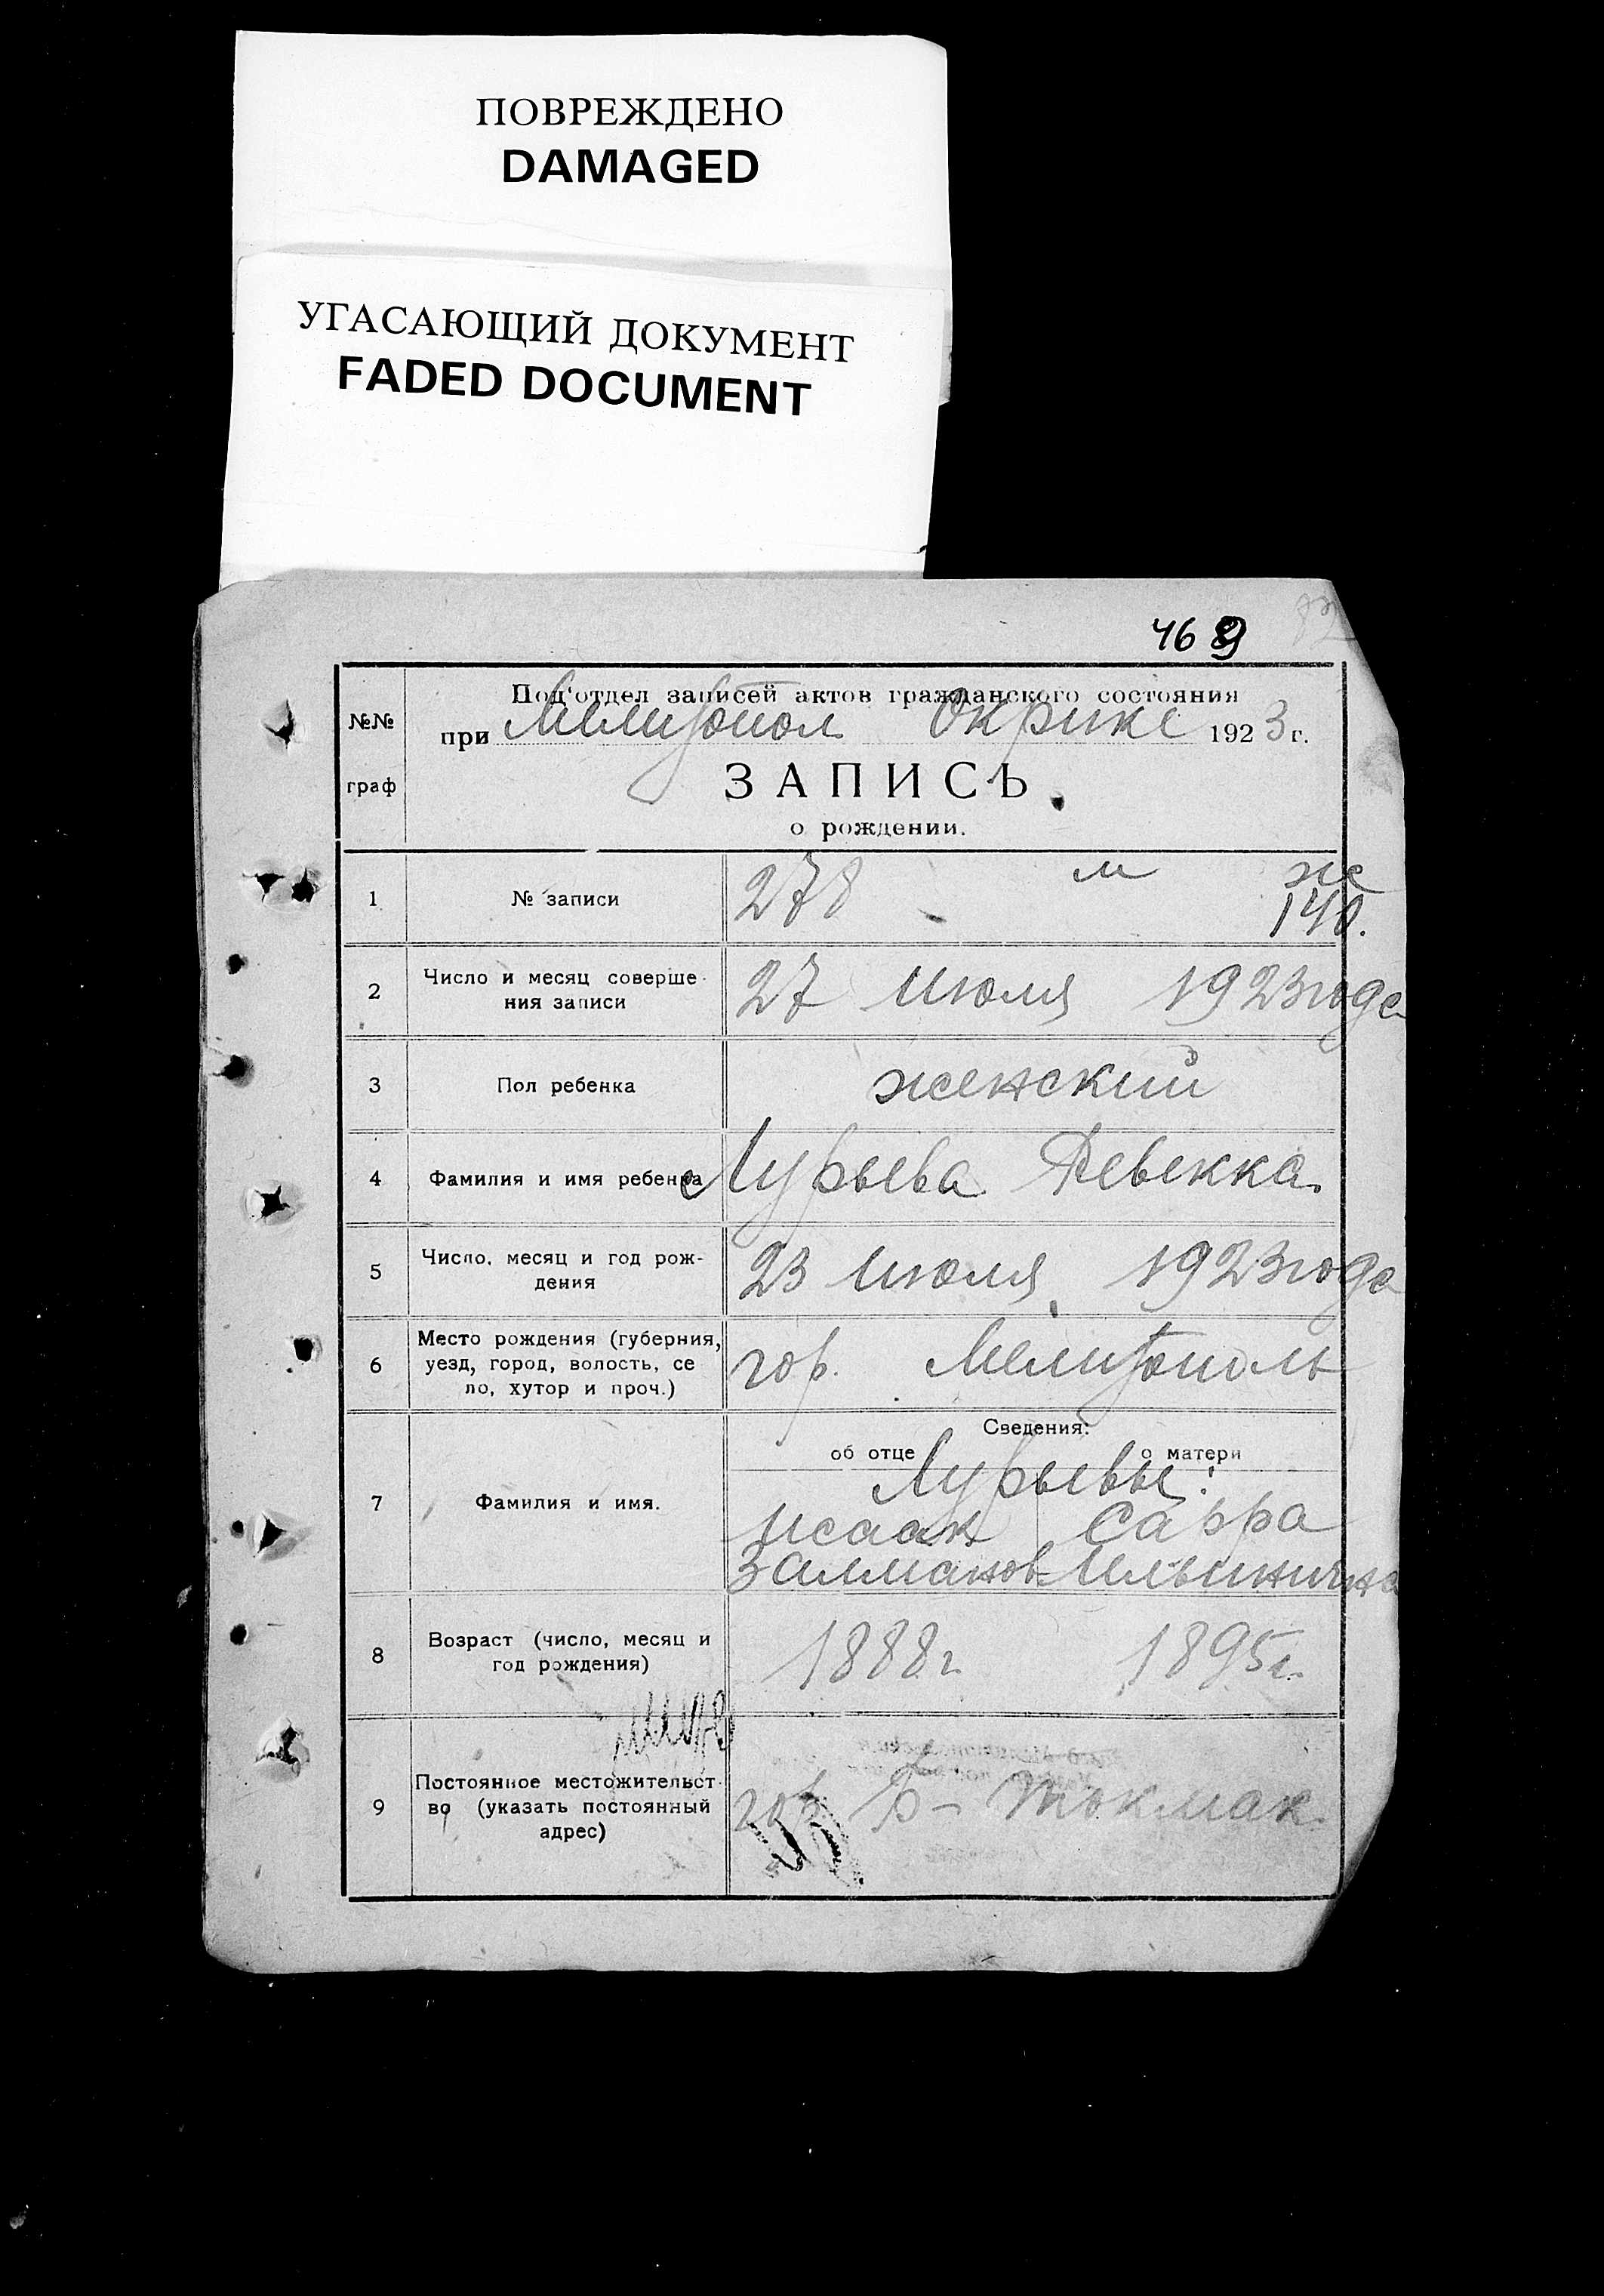 ПОВРЕЖДЕНО
DAMAGED
УГАСАЮЩИЙ ДОКУМЕНТ
FADED DOCUMENT
469
№№ граф
Под'отдел записей актов гражданского состояния
при Мелитопол. Окрике 1923 г.
ЗАПИСЬ
о рождении.
м же
1 № записи 278 140.
2 Число и месяц соверше-
ния записи 27 Июля 1923 года
3 Пол ребенка женский
4 Фамилия и имя ребенка Лурьева Ревекка.
5 Число, месяц и год рож-
дения 23 Июля 1923 года
6 Место рождения (губерния,
уезд, город, волость, се
ло, хутор и проч.) гор. Мелитополь
Сведения:
об отце о матери
Лурьевы:
7 Фамилия и имя. Исаак Сарра
Залманов- Ильинична
8 Возраст (число, месяц и
год рождения) 1888 г. 1895 г.
9 Постоянное местожительст-
во (указать постоянный
адрес) гор Б- Токмак.